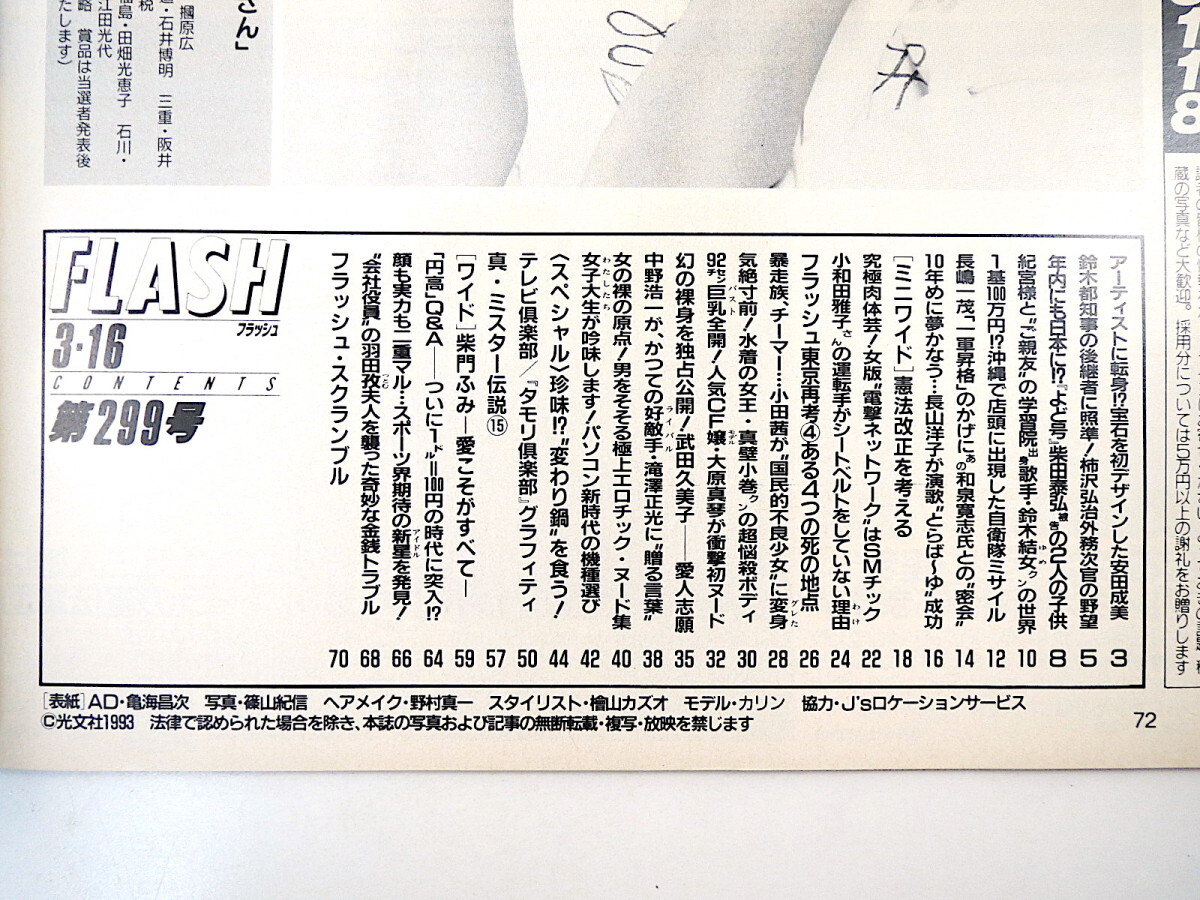 さん」
摑原広
・石井博明 三重・阪井
税
福島・田畑光恵子 石川・
江田光代
略 賞品は当選者発表後
たします）
118
蔵の写真など大歓迎。採用分については5万円以上の謝礼をお贈りします
FLASH
フラッシュ
3・16
CONTENTS
第299号
アーティストに転身!?宝石を初デザインした安田成美 3
鈴木都知事の後継者に照準！柿沢弘治外務次官の野望 5
年内にも日本に!?『よど号』柴田泰弘被告の2人の子供 8
紀宮様と“ご親友”の学習院出身歌手・鈴木結女クンの世界 10
1基100万円!?沖縄で店頭に出現した自衛隊ミサイル 12
長嶋一茂、「一軍昇格」のかげにあの和泉寛志氏との“密会” 14
10年めに夢かなう…長山洋子が演歌“とらば～ゆ”成功 16
［ミニワイド］憲法改正を考える 18
究極肉体芸！女版“電撃ネットワーク”はSMチック 22
小和田雅子さんの運転手がシートベルトをしていない理由 24
フラッシュ東京再考④ある4つの死の地点 26
暴走族、チーマー…小田茜が“国民的不良少女”に変身 28
気絶寸前！水着の女王・真壁小巻クンの超悩殺ボディ 30
92センチ巨乳全開！人気CF嬢・大原真琴が衝撃初ヌード 32
幻の裸身を独占公開！武田久美子――愛人志願 35
中野浩一が、かつての好敵手・滝澤正光に“贈る言葉” 38
女の裸の原点！男をそそる極上エロチック・ヌード集 40
女子大生が吟味します！パソコン新時代の機種選び 42
〈スペシャル〉珍味!?“変わり鍋”を食う！ 44
テレビ倶楽部／『タモリ倶楽部』グラフィティ 50
真・ミスター伝説⑮ 57
［ワイド］柴門ふみ―愛こそがすべて― 59
「円高」Q&A――ついに1ドル＝100円の時代に突入!? 64
顔も実力も二重マル…スポーツ界期待の新星を発見！ 66
“会社役員”の羽田孜夫人を襲った奇妙な金銭トラブル 68
フラッシュ・スクランブル 70
［表紙］AD・亀海昌次 写真・篠山紀信 ヘアメイク・野村真一 スタイリスト・檜山カズオ モデル・カリン 協力・J'sロケーションサービス
©光文社1993 法律で認められた場合を除き、本誌の写真および記事の無断転載・複写・放映を禁じます
72